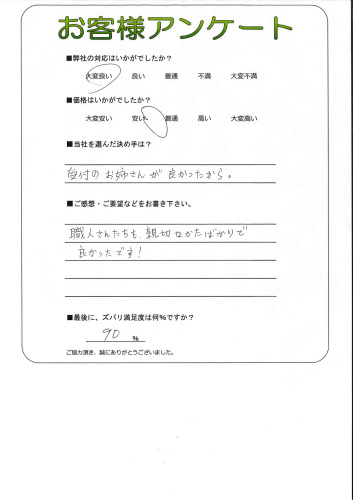 お客様アンケート
■弊社の対応はいかがでしたか？
大変良い 良い 普通 不満 大変不満
■価格はいかがでしたか？
大変安い 安い 普通 高い 大変高い
■当社を選んだ決め手は？
受付のお姉さんが良かったから。
■ご感想・ご要望などをお書き下さい。
職人さんたちも、親切なかたばかりで
良かったです！
■最後に、ズバリ満足度は何％ですか？
90 ％
ご協力頂き、誠にありがとうございました。